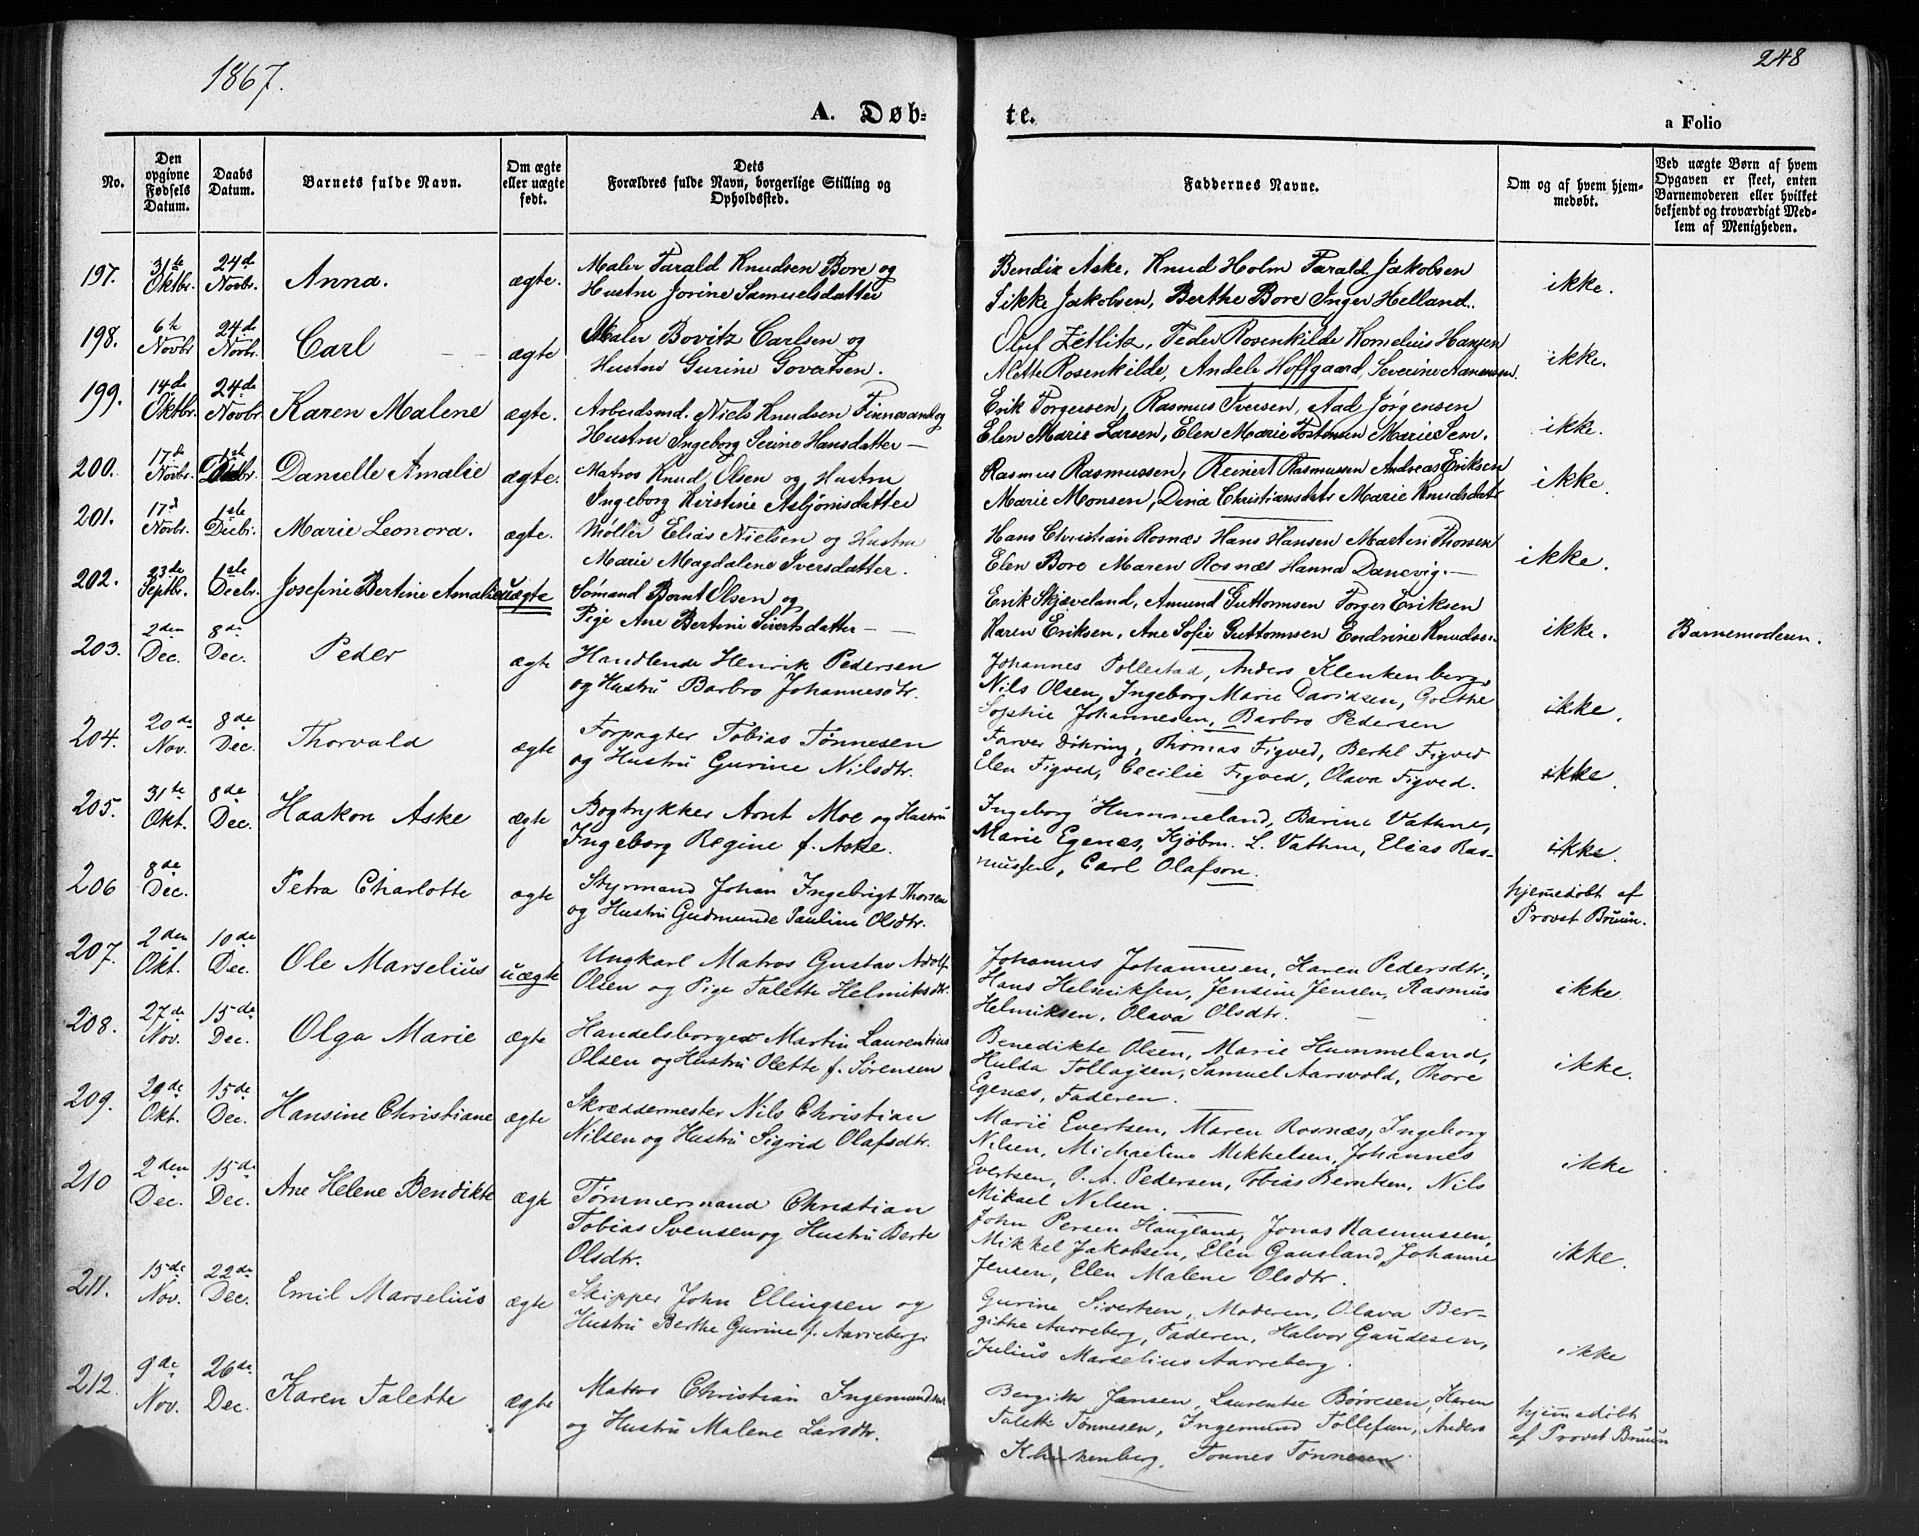 1867.
248
A. Døb-
te.
a Folio
No.
Den opgivne Fødsels Datum.
Daabs Datum.
Barnets fulde Navn.
Om ægte eller uægte født.
Dets Forældres fulde Navn, borgerlige Stilling og Opholdssted.
Faddernes Navne.
Om og af hvem hjemmedøbt.
Ved uægte Børn af hvem Opgaven er skeet, enten Barnemoderen eller hvilket bekjendt og troværdigt Medlem af Menigheden.
197. 31te Oktbr. 24de Novbr. Anna. ægte. Maler Tarald Knudsen Bore og
Hustru Jorine Samuelsdatter
Bendix Aske, Knud Holm Tarald Jakobsen
Sikke Jakobsen, Berthe Bore Inger Helland.
ikke.
198. 6te Novbr 24de Novbr. Carl ægte Maler Bovitz Carlsen og
Hustru Gurine Govertsen.
Oluf Zetlitz, Peder Rosenkilde Kornelius Hansen
Alette Rosenkilde, Andele Hoffgaard, Severine Aanensen.
ikke.
199. 14de Oktbr. 24de Novbr. Karen Malene ægte. Arbeidsmd. Niels Knudsen Finnesand og
Hustru Ingeborg Serine Hansdatter
Erik Torgersen, Rasmus Iversen, Aad Jørgensen
Elen Marie Larsen, Elen Marie Tostensen Marie Sem.
ikke.
200. 17de Novbr. 1ste Decbr. Danielle Amalie ægte. Matros Knud Olsen og Hustru
Ingeborg Kirstine Asbjørnsdatter
Rasmus Rasmussen, Reinert Rasmussen Andreas Eriksen
Marie Monsen, Dina Christiansdatr Marie Knudsdatr
ikke.
201. 17d Novbr. 1ste Decbr. Marie Leonora. ægte. Møller Elias Nielsen og Hustru
Marie Magdalene Iversdatter.
Hans Christian Rosnæs Hans Hansen Martin Thorsen
Elen Bore Maren Rosnæs Hanna Danevig.
ikke.
202. 23de Septbr. 1ste Decbr. Josefine Bertine Amalie uægte Sømand Bernt Olsen og
Pige Ane Bertine Sivertsdatter
Erik Skjæveland, Amund Guttormsen Torger Eriksen
Karen Eriksen, Ane Sofie Guttormsen Endrine Knudsen
ikke. Barnemoderen.
203. 2den Dec. 8de Dec. Peder ægte Handlende Henrik Pedersen
og Hustru Barbro Johannesdtr.
Johannes Pollestad, Anders Klenkenberg,
Nils Olsen, Ingeborg Marie Davidsen, Grethe
Sophie Johannesen, Barbro Pedersen
ikke.
204. 20de Nov. 8de Dec. Thorvald ægte Forpagter Tobias Tønnesen
og Hustru Gurine Nilsdtr.
Farver Døhring, Thomas Figved, Bertel Figved
Elen Figved, Cecilie Figved, Olava Figved.
ikke.
205. 31te Okt. 8de Dec. Haakon Aske ægte Bogtrykker Arnt Moe og Hustru
Ingeborg Regine f. Aske.
Ingeborg Hummeland, Barine Vathne,
Marie Egenæs, Kjøbm. L. Vathne, Elias Ras-
mussen, Carl Olafson.
ikke.
206 8de Dec. Petra Charlotte ægte Styrmand Johan Ingebrigt Thorsen
og Hustru Gudmunde Pauline Olsdtr.
hjemedøbt af
Provst Bruun.
207. 2den Okt. 10de Dec. Ole Marselius uægte Ungkarl Matros Gustav Adolf
Olsen og Pige Talette Helmiksdtr.
Johannes Johannesen, Karen Pedersdtr.,
Hans Helmiksen, Jensine Jensen, Rasmus
Helmiksen, Olava Olsdtr.
ikke
208. 27de Nov. 15de Dec. Olga Marie ægte Handelsborger Martin Laurentius
Olsen og Hustru Olette f. Sørensen
Benedikte Olsen, Marie Hummeland,
Hulda Tollagsen, Samuel Aarsvold, Thore
Egenæs, Faderen.
ikke.
209. 29de Okt. 15de Dec. Hansine Christiane ægte Skræddermester Nils Christian
Nilsen og Hustru Sigrid Olafsdtr.
Marie Evertsen, Maren Rosnæs, Ingeborg
Nilsen, Michaeline Mikkelsen, Johannes
Evertsen, P. A. Pedersen, Tobias Berntsen, Nils
Mikael Nilsen.
ikke
210 2den Dec. 15de Dec. Ane Helene Bendikte ægte Tømmermand Christian
Tobias Svensen og Hustru Berte
Olsdtr.
John Persen Haugland, Jonas Rasmussen,
Mikkel Jakobsen, Elen Gausland, Johanne
Jensen, Elen Malene Olsdtr.
ikke.
211. 15de Nov. 22de Dec. Emil Marselius ægte Skipper John Ellingsen og
Hustru Berthe Gurine f. Aarreberg.
Gurine Sivertsen, Moderen, Olava Ber-
githe Aarreberg, Faderen, Halvor Gaudesen,
Julius Marselius Aarreberg.
ikke
212. 9de Nov. 26de Dec. Karen Talette ægte Matros Christian Ingemundsen
og Hustru Malene Larsdtr.
Bergitte Jansen, Laurentse Børresen, Karen
Talette Tønnesen, Ingemund Tollefsen, Anders
Klenkenberg, Tønnes Tønnesen
hjemedøbt
af Provst Bruun